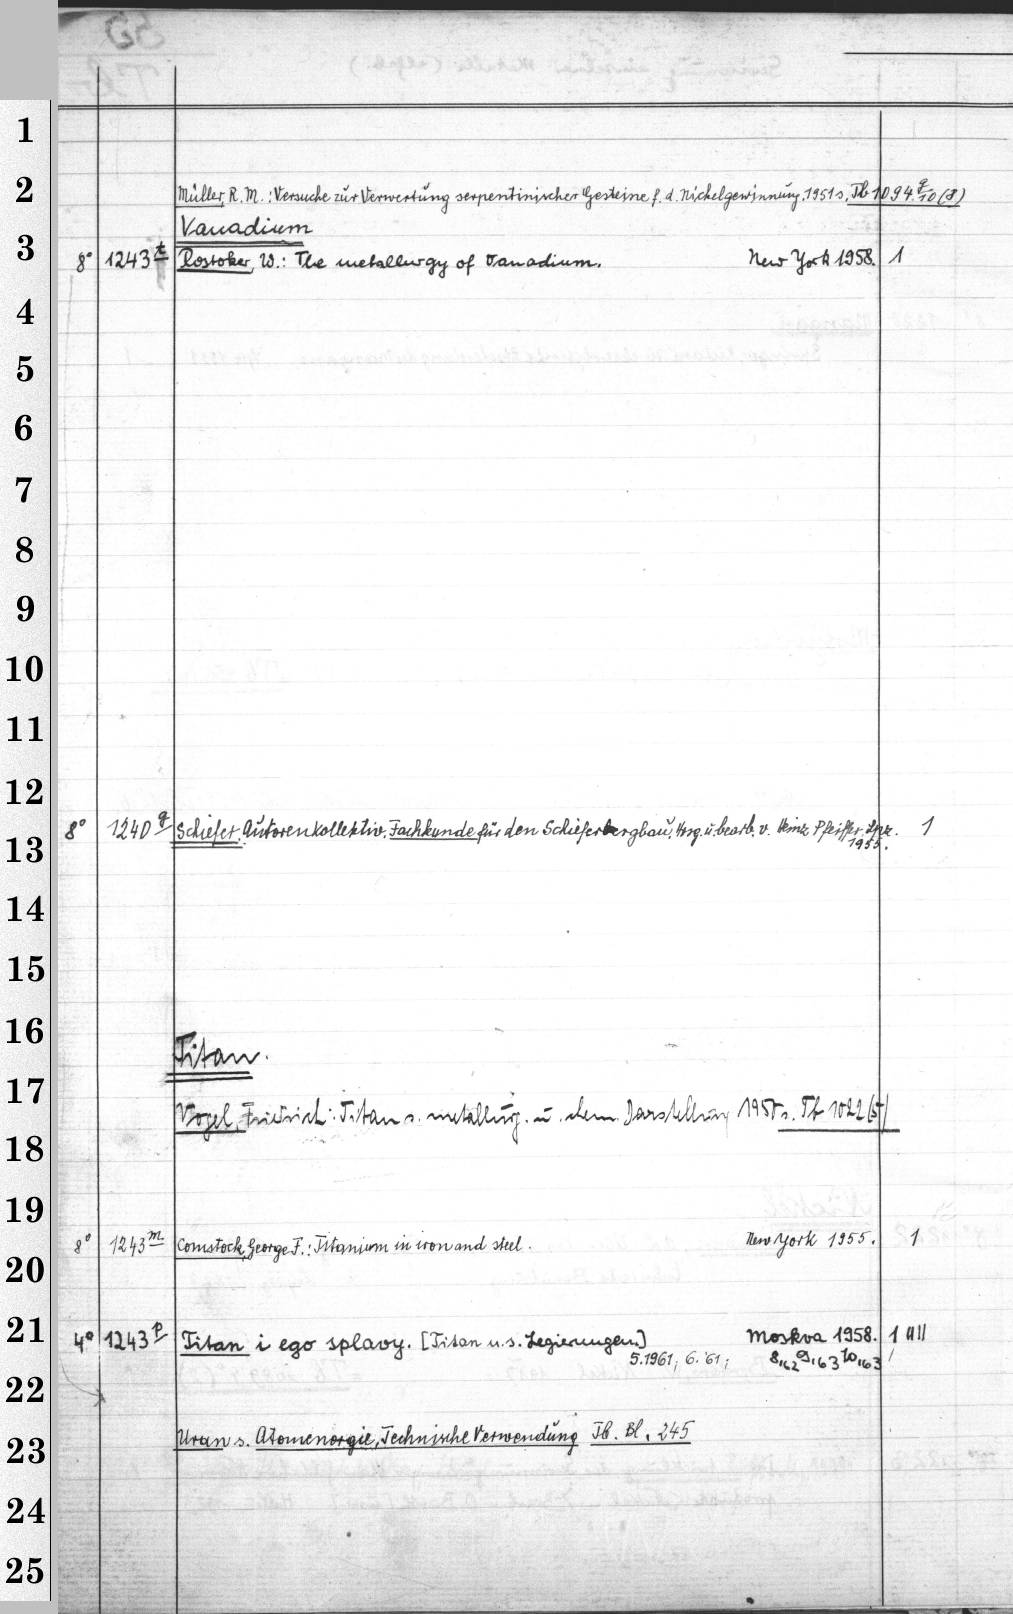 1
2
Müller, R. M.: Versuche zur Verwertung serpentinischer Gesteine f. d. Nickelgewinnung. 1951 s. Tb 1094 g/10 (8)
Vanadium
3
8° 1243 t Rostoker, W.: The metallurgy of Vanadium. New York 1958. 1
4
5
6
7
8
9
10
11
12
8° 1240 g Schiefer. Autorenkollektiv. Fachkunde für den Schieferbergbau, Hrsg. u. bearb. v. Heinz Pfeiffer. Lpz. 1
13
1955.
14
15
16
Titan.
17
Vogel, Friedrich: Titan s. metallurg. u. chem. Darstellung 1950 s. Tb 1022 (5)
18
19
8° 1243 m Comstock, George F.: Titanium in iron and steel. New York 1955. 1
20
21
4° 1243 p Titan i ego splavy. [Titan u. s. Legierungen.] Moskva 1958. 1 III
5.1961; 6.'61; 8,62 9,63 10,63
22
Uran s. Atomenergie, Technische Verwendung Tb. Bl. 245
23
24
25